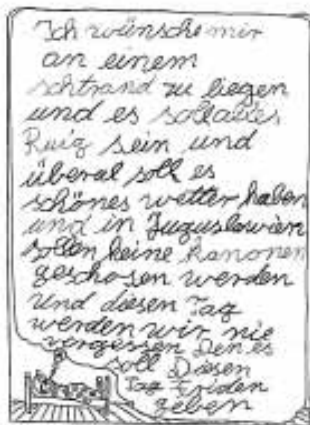 Ich wünsche mir
an einem
schtrand zu liegen
und es soll alles
Ruig sein und
überal soll es
schönes wetter haben
und in Juguslowien
sollen keine kanonen
geschosen werden
und diesen Tag
werden wir nie
vergessen Den es
soll Diesen
Tag Friden
geben